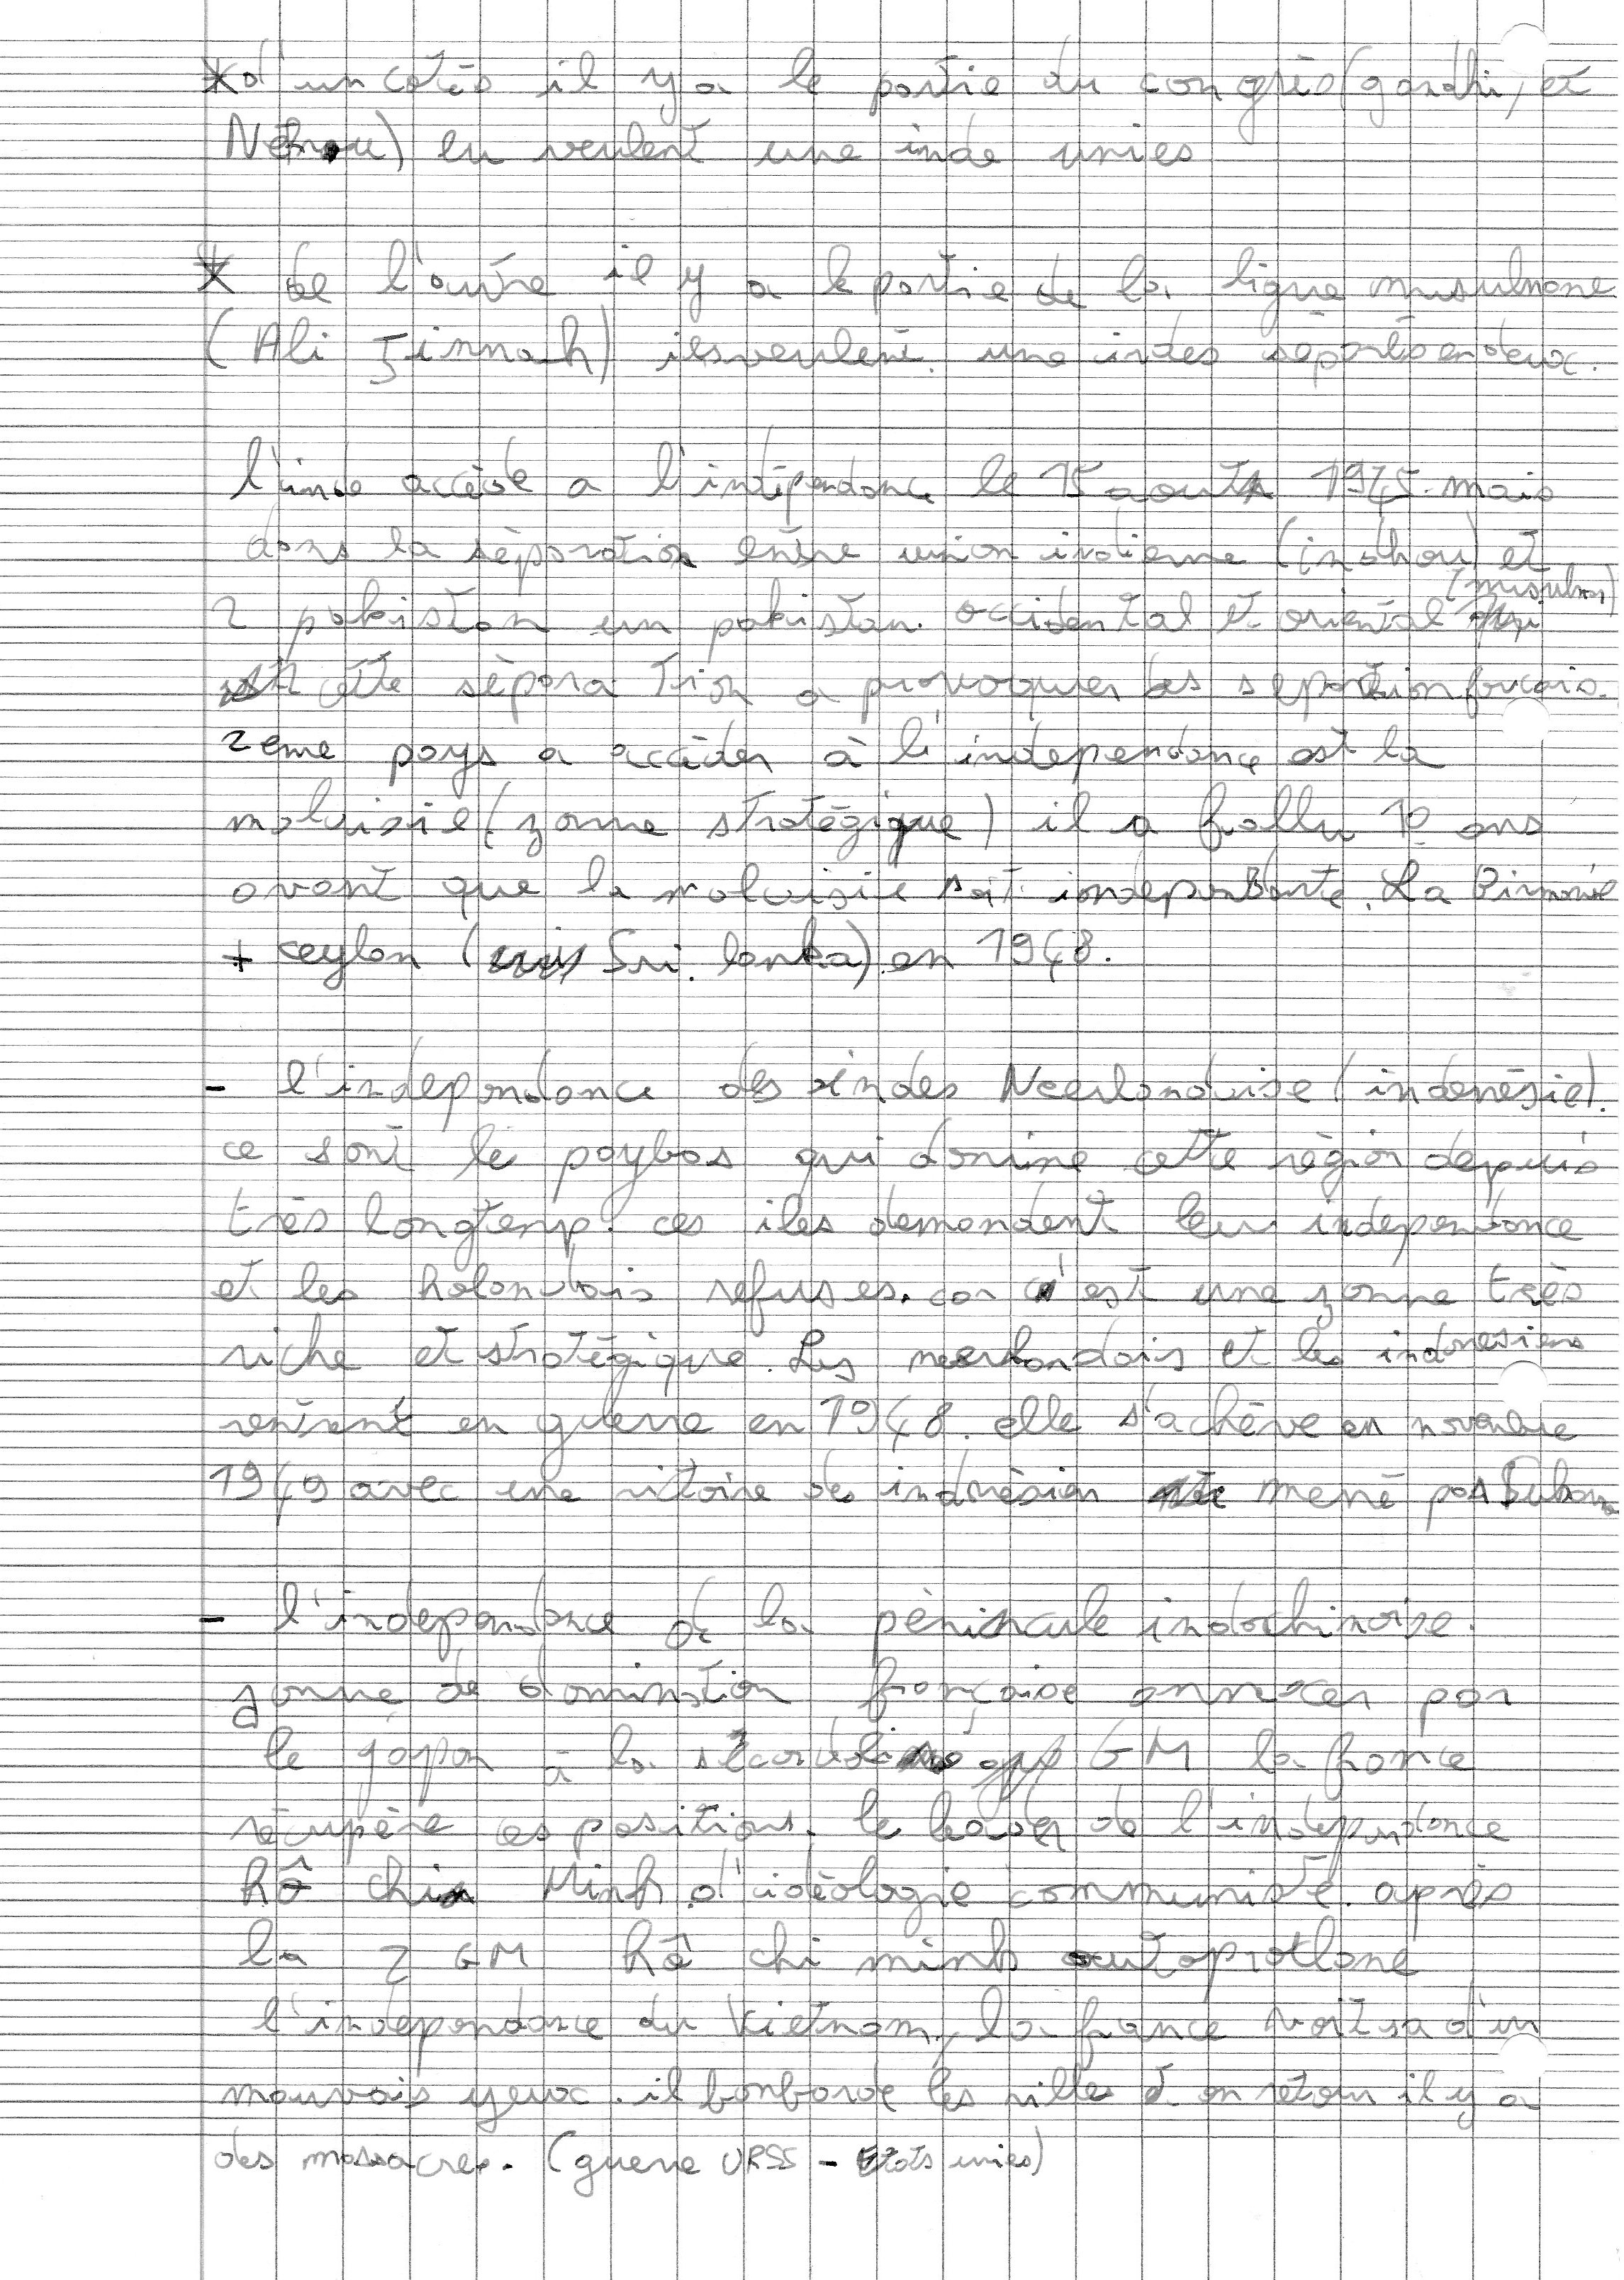 * d'un cotés il y a le partie du congrès (gandhi, et
Nehrou) eu veulent une inde unies
* de l'autre il y a le partie de la ligue musulmane
(Ali Jinnah) ils veulent une indes séparés en deux.
l'inde accède a l'indépendance le 15 aout 1945 mais
dans la séparation entre union indienne (indhou) et
2 pakistan un pakistan occidental et oriental (musulman)
cette séparation a provoquer des
2eme pays a accèder à l'independance est la
malaisie (zonne stratégique) il a fallu 10 ans
avant que la malaisie soit independante. La Birmanie
+ ceylan (Sri lanka) en 1948.
- l'independance des indes Neerlandaise (indenésie).
ce sont le paybas qui domine cette région depuis
très longtemp. ces iles demandent leur independance
et les holandais refuses. car c'est une zonne très
riche et stratégique. Les neerlandais et les indonesiens
rentrent en guerre en 1948. elle s'achève en novembre
1949 avec une victoire des indonésien mené par
- l'independance de la pénincule indochinoise.
zonne de domination française annexer par
le japon à la GM la france
récupère ces positions. le leader de l'independance
hô chin Minh d'idéologie communiste. après
la 2 GM hô chi minh autoproclane
l'independance du Vietnam, la france voit sa d'un
mauvais yeux. il bonbarde les ville et en retour il y a
des massacres. (guerre URSS - Etats unies)